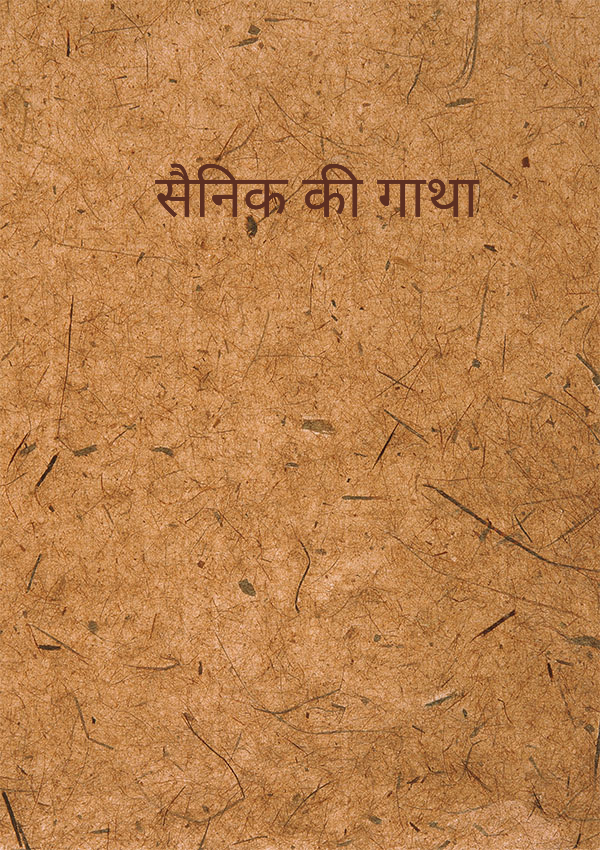 सैनिक की गाथा